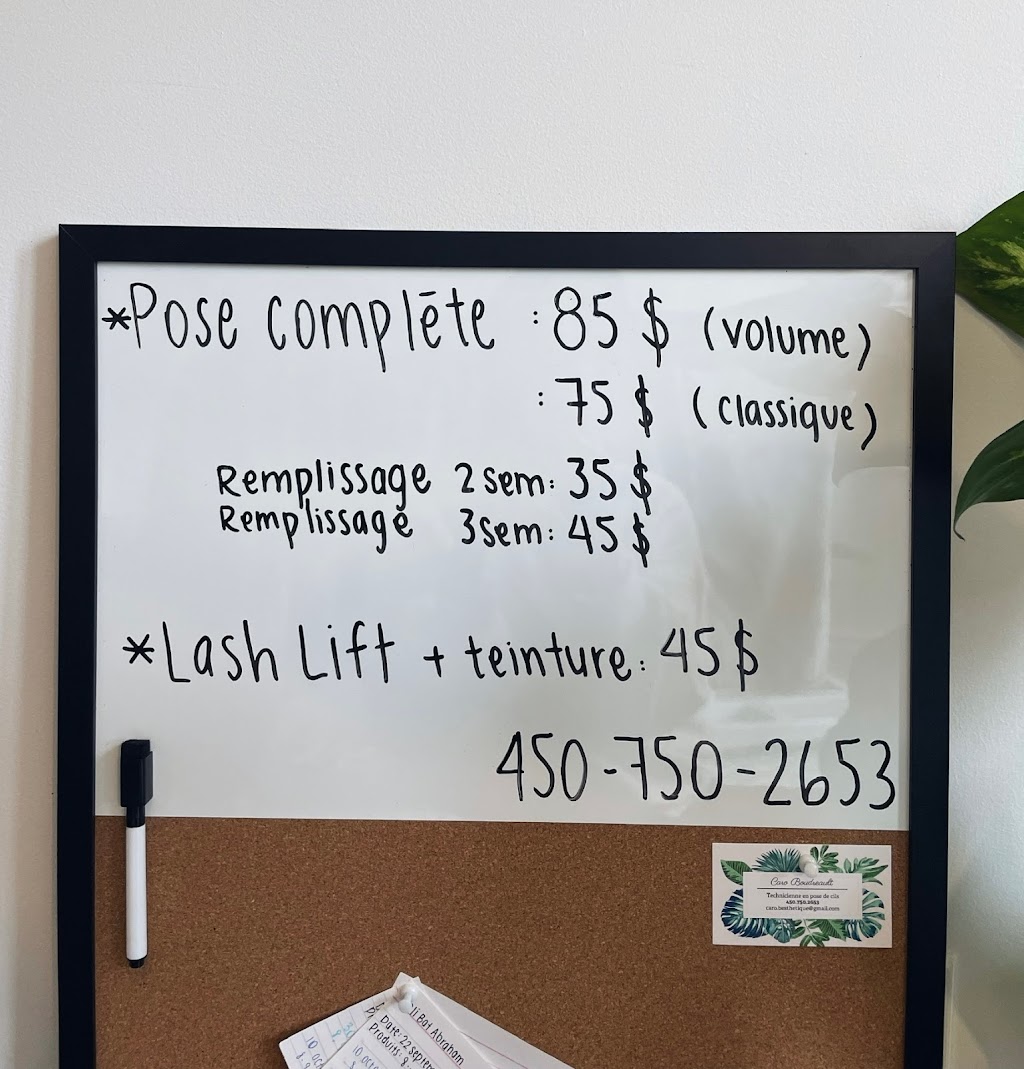 *Pose complēte : 85 $ (volume)
: 75 $ (classique)
Remplissage 2 sem: 35 $
Remplissage 3 sem: 45 $
*Lash Lift + teinture: 45 $
450-750-2653
Caro Boudreault
Technicienne en pose de cils
450.750.2653
caro.besthetique@gmail.com
li Bat Abraham
Date: 22 septem
Produits: 8
10 oct
10 octo